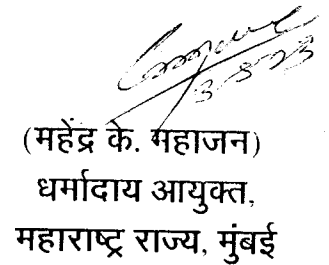 3-8-23
(महेंद्र के. महाजन)
धर्मादाय आयुक्त,
महाराष्ट्र राज्य, मुंबई